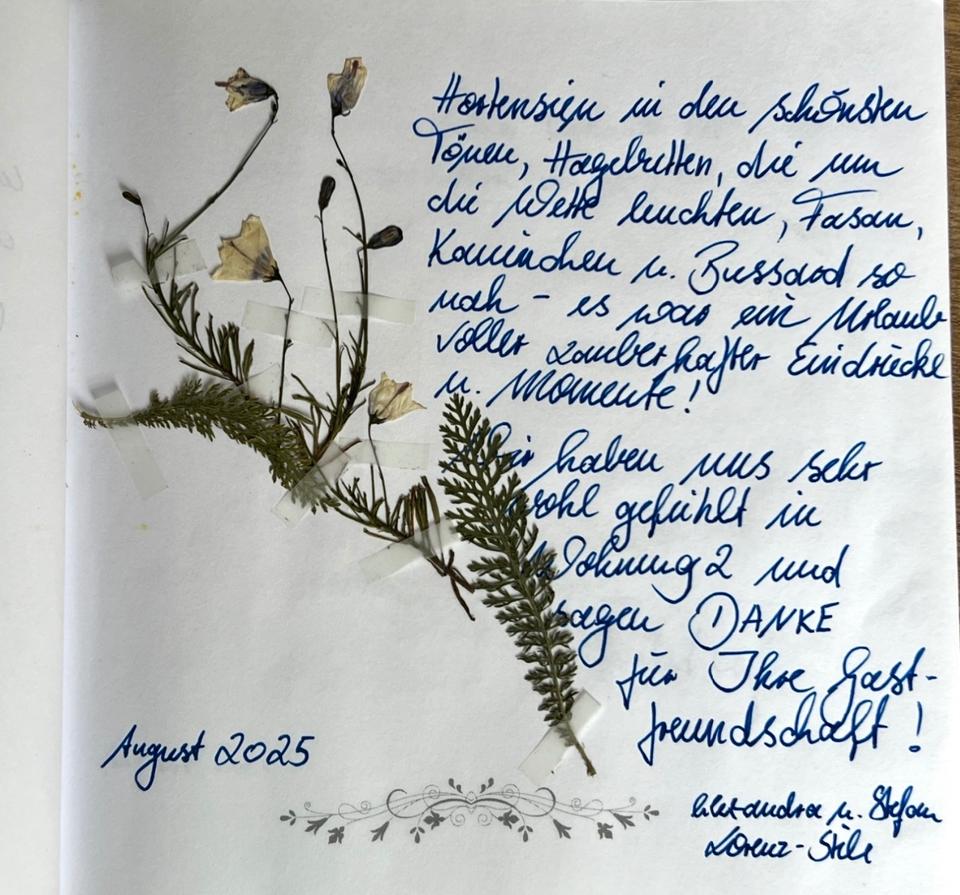 Hortensien in den schönsten
Tönen, Hagebutten, die um
die Wette leuchten, Fasan,
Kaninchen u. Bussard so
nah - es war ein Urlaub
voller zauberhafter Eindrücke
u. Momente!
Wir haben uns sehr
wohl gefühlt in
Wohnung 2 und
sagen DANKE
für Ihre Gast-
freundschaft!
August 2025
Alexandra u. Stefan
Lorenz-